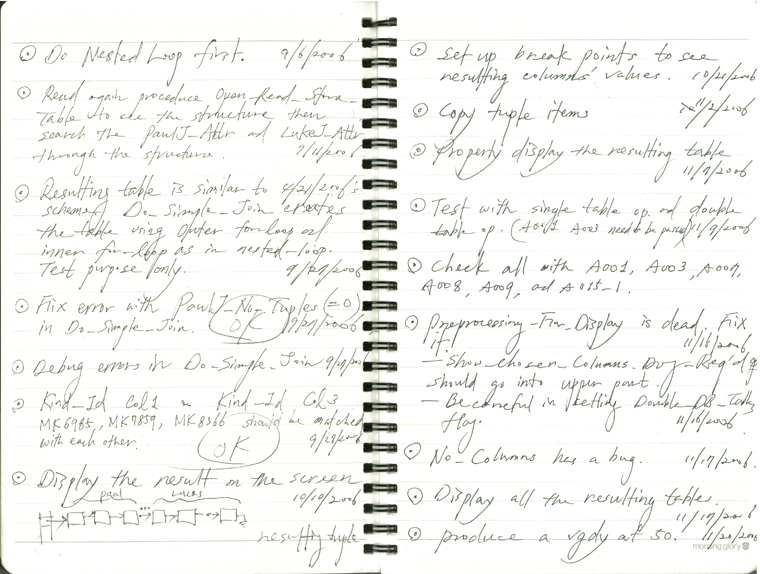 Do Nested Loop first. 9/6/2006
Read again procedure Open_Read_Store_
Table to see the structure then
search the PaulJ_Attr and LukeJ_Attr
through the structure. 9/11/2006
Resulting table is similar to 4/21/2006's
schema. Do_Simple_Join creates
the table using outer for-loop and
inner for-loop as in nested-loop.
Test purpose only. 9/29/2006
Fix error with PaulJ_No_Tuples (=0)
in Do_Simple_Join. OK 9/27/2006
Debug errors in Do_Simple_Join 9/29/2006
Kind_Id Col1 Kind_Id Col3
MK6985, MK7859, MK8366 should be matched
with each other. OK 9/28/2006
Display the result on the screen
paul Lucas 10/10/2006
resulting tuple
Set up break points to see
resulting columns' values. 10/21/2006
Copy tuple items 11/2/2006
Properly display the resulting table
11/7/2006
Test with single table op. and double
table op. (A001 A003 need to be passed) 11/9/2006
Check all with A001, A003, A007,
A008, A009, and A015-1.
Preprocessing_For_Display is dead. Fix
it! 11/16/2006
- Show_Chosen_Columns_
should go into upper part.
- Be careful in setting Double_DB_
flag. 11/16/2006
No_Columns has a bug. 11/17/2006
Display all the resulting tables.
11/17/2006
produce a at 50. 11/20/2006
morning glory